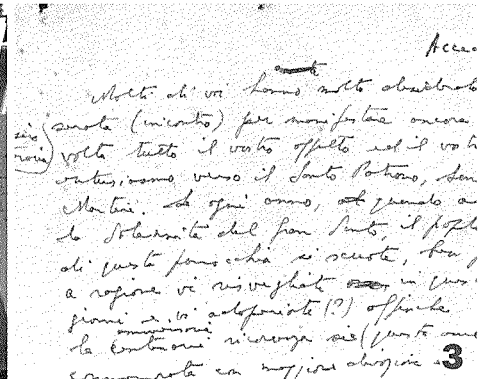 Molti di voi hanno molto desiderato
serata (incontro) per manifestare ancora
volta tutto il vostro affetto ed il vostr
entusiasmo verso il Santo Patrono, San
Martino. Se ogni anno, quando
la Solennità del gran Santo, il popol
di questa parrocchia si scuote, ben
a ragione vi risvegliate in ques
giorni e vi adoperate (?) affinché
la ricorrenza sia (questo anno
con maggiore devozione
3